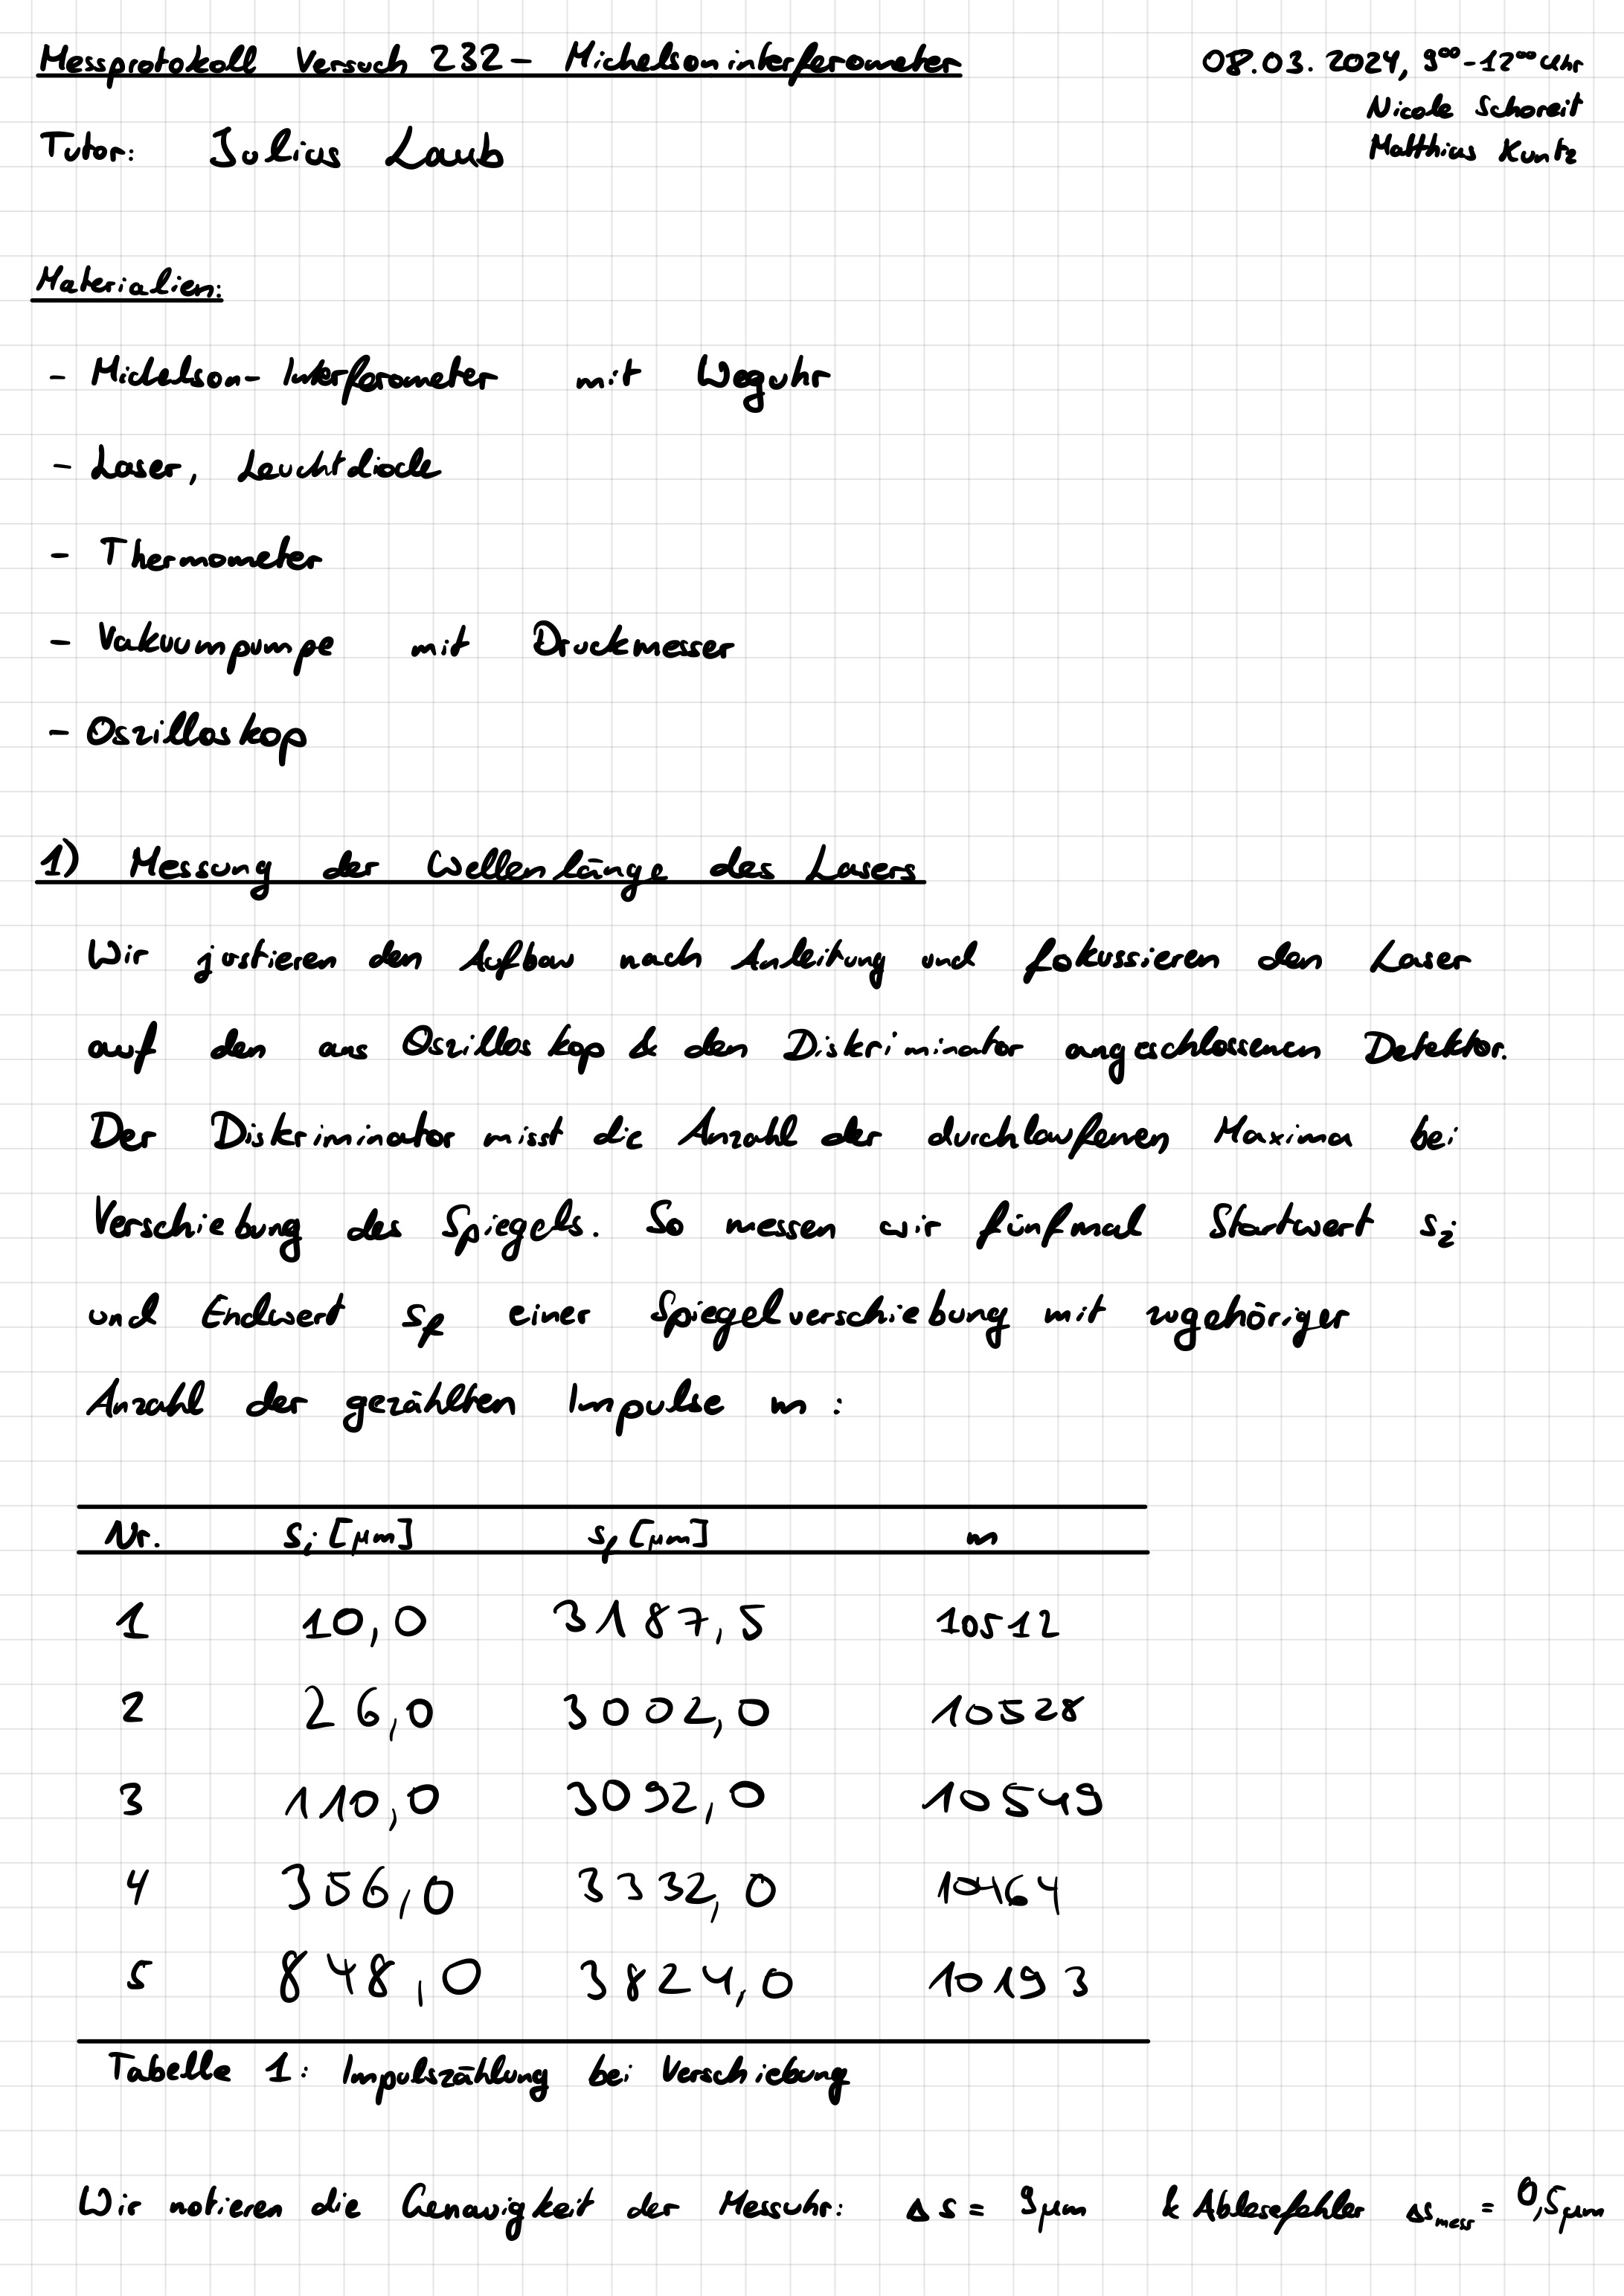 Messprotokoll Versuch 232 - Michelsoninterferometer
08.03.2024, 9⁰⁰-12⁰⁰ Uhr
Nicole Schoreit
Matthias Kuntz
Tutor: Julius Laub
Materialien:
- Michelson-Interferometer mit Weguhr
- Laser, Leuchtdiode
- Thermometer
- Vakuumpumpe mit Druckmesser
- Oszilloskop
1) Messung der Wellenlänge des Lasers
Wir justieren den Aufbau nach Anleitung und fokussieren den Laser
auf den ans Oszilloskop & den Diskriminator angeschlossenen Detektor.
Der Diskriminator misst die Anzahl der durchlaufenen Maxima bei
Verschiebung des Spiegels. So messen wir fünfmal Startwert sᵢ
und Endwert s_f einer Spiegelverschiebung mit zugehöriger
Anzahl der gezählten Impulse m :
Nr. sᵢ [μm] s_f [μm] m
1 10,0 3187,5 10512
2 26,0 3002,0 10528
3 110,0 3092,0 10549
4 356,0 3332,0 10464
5 848,0 3824,0 10193
Tabelle 1: Impulszählung bei Verschiebung
Wir notieren die Genauigkeit der Messuhr: Δs = 9μm & Ablesefehler Δs_mess = 0,5μm